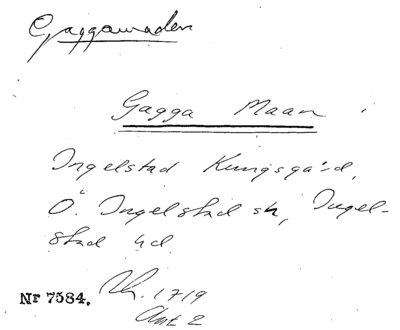 Gaggamaden
Gagga Maan
Ingelstad Kungsgård,
Ö. Ingelstad sn, Ingel-
stad hd.
Nr 7584. Lh. 1719
Akt 2